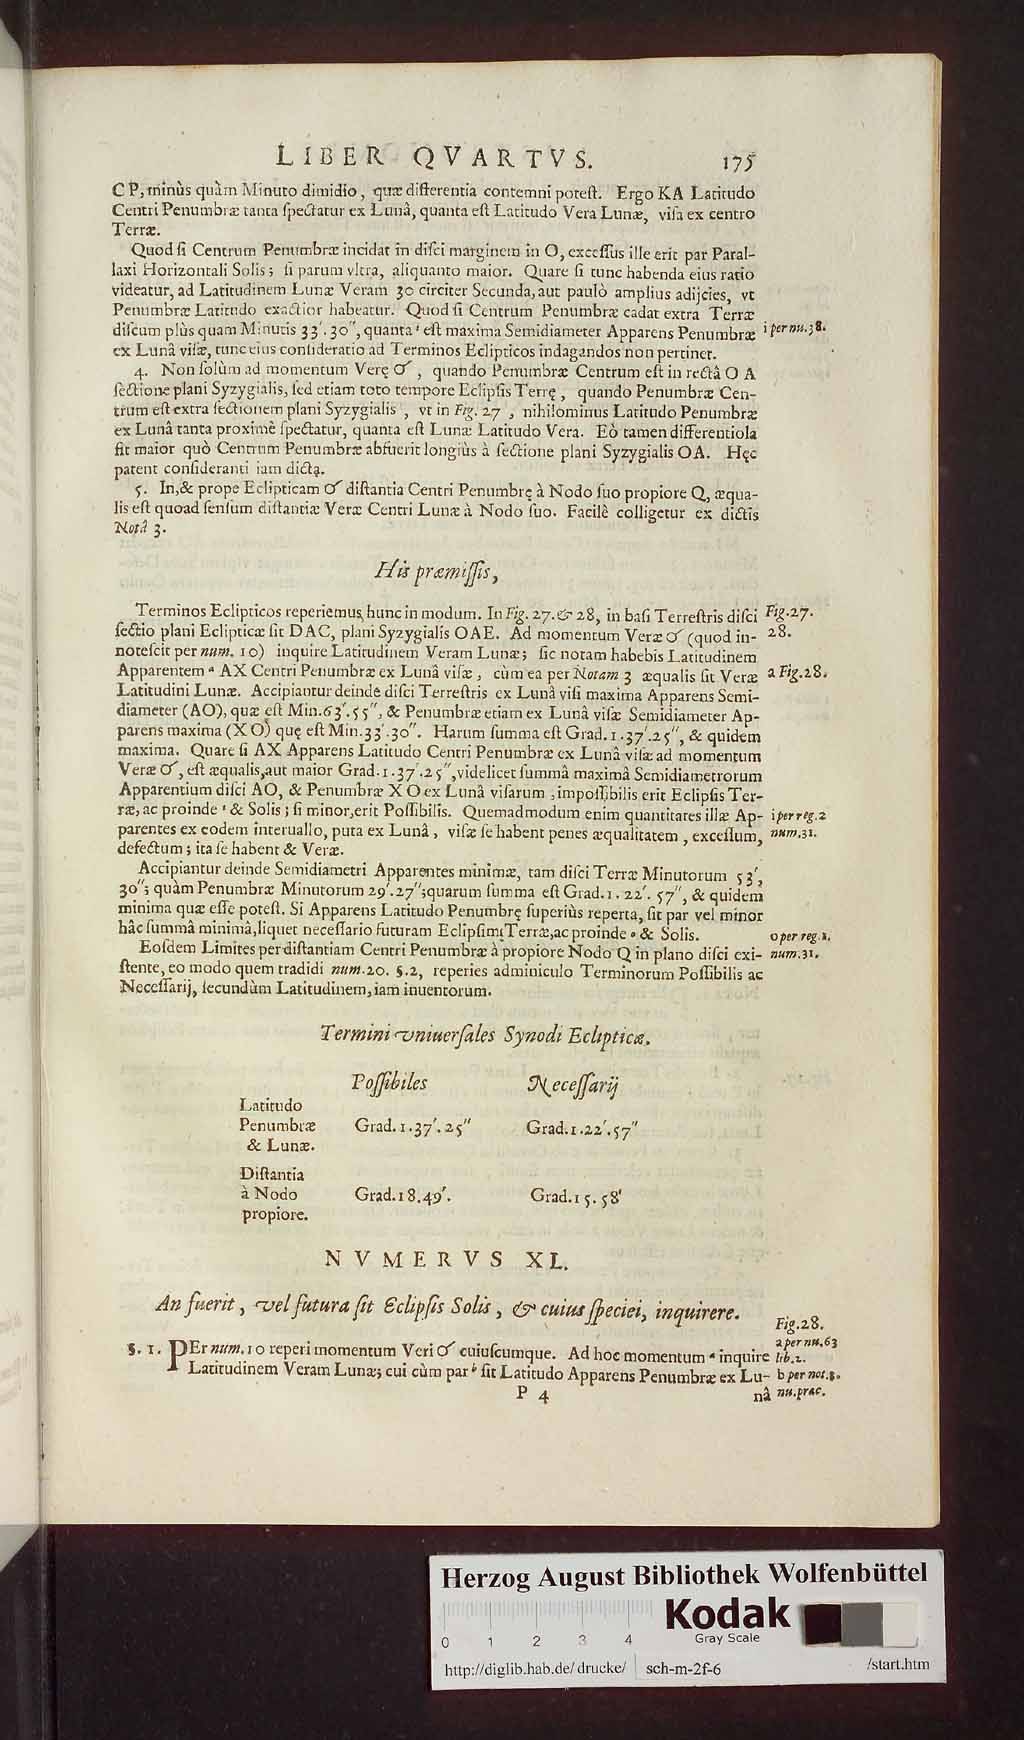 LIBER QVARTVS. 175
CP, minùs quàm Minuto dimidio, quæ differentia contemni potest. Ergo KA Latitudo
Centri Penumbræ tanta spectatur ex Lunâ, quanta est Latitudo Vera Lunæ, visa ex centro
Terræ.
Quod si Centrum Penumbræ incidat in disci marginem in O, excessus ille erit par Paral-
laxi Horizontali Solis; si parum vltra, aliquanto maior. Quare si tunc habenda eius ratio
videatur, ad Latitudinem Lunæ Veram 30 circiter Secunda, aut paulò amplius adijcies, vt
Penumbræ Latitudo exactior habeatur. Quod si Centrum Penumbræ cadat extra Terræ
discum plùs quam Minutis 33'. 30", quanta i est maxima Semidiameter Apparens Penumbræ i per nu. 38.
ex Lunâ visæ, tunc eius consideratio ad Terminos Eclipticos indagandos non pertinet.
4. Non solùm ad momentum Verę ☌, quando Penumbræ Centrum est in rectâ OA
sectione plani Syzygialis, sed etiam toto tempore Eclipsis Terrę, quando Penumbræ Cen-
trum est extra sectionem plani Syzygialis, vt in Fig. 27, nihilominus Latitudo Penumbræ
ex Lunâ tanta proximè spectatur, quanta est Lunæ Latitudo Vera. Eò tamen differentiola
fit maior quò Centrum Penumbræ abfuerit longiùs à sectione plani Syzygialis OA. Hęc
patent consideranti iam dicta.
5. In, & prope Eclipticam ☌ distantia Centri Penumbrę à Nodo suo propiore Q, æqua-
lis est quoad sensum distantiæ Veræ Centri Lunæ à Nodo suo. Facilè colligetur ex dictis
Notâ 3.
His præmissis,
Terminos Eclipticos reperiemus hunc in modum. In Fig. 27. & 28, in basi Terrestris disci Fig. 27.
sectio plani Eclipticæ sit DAC, plani Syzygialis OAE. Ad momentum Veræ ☌ (quod in- 28.
notescit per num. 10) inquire Latitudinem Veram Lunæ; sic notam habebis Latitudinem
Apparentem a AX Centri Penumbræ ex Lunâ visæ, cùm ea per Notam 3 æqualis sit Veræ a Fig. 28.
Latitudini Lunæ. Accipiantur deinde disci Terrestris ex Lunâ visi maxima Apparens Semi-
diameter (AO), quæ est Min. 63'. 55", & Penumbræ etiam ex Lunâ visæ Semidiameter Ap-
parens maxima (XO) quę est Min. 33'. 30". Harum summa est Grad. 1. 37'. 25", & quidem
maxima. Quare si AX Apparens Latitudo Centri Penumbræ ex Lunâ visæ ad momentum
Veræ ☌, est æqualis, aut maior Grad. 1. 37'. 25", videlicet summâ maximâ Semidiametrorum
Apparentium disci AO, & Penumbræ XO ex Lunâ visarum, impossibilis erit Eclipsis Ter-
ræ, ac proinde i & Solis; si minor, erit Possibilis. Quemadmodum enim quantitates illæ Ap- i per reg. 2
parentes ex eodem interuallo, puta ex Lunâ, visæ se habent penes æqualitatem, excessum, num. 31.
defectum; ita se habent & Veræ.
Accipiantur deinde Semidiametri Apparentes minimæ, tam disci Terræ Minutorum 53',
30"; quàm Penumbræ Minutorum 29'. 27"; quarum summa est Grad. 1. 22'. 57", & quidem
minima quæ esse potest. Si Apparens Latitudo Penumbrę superiùs reperta, sit par vel minor
hâc summâ minimâ, liquet necessario futuram Eclipsim Terræ, ac proinde o & Solis. o per reg. 1.
Eosdem Limites per distantiam Centri Penumbræ à propiore Nodo Q in plano disci exi- num. 31.
stente, eo modo quem tradidi num. 20. §. 2, reperies adminiculo Terminorum Possibilis ac
Necessarij, secundùm Latitudinem, iam inuentorum.
Termini vniuersales Synodi Eclipticæ.
Possibiles Necessarij
Latitudo
Penumbræ Grad. 1. 37'. 25" Grad. 1. 22'. 57"
& Lunæ.
Distantia
à Nodo Grad. 18. 49'. Grad. 15. 58'
propiore.
NVMERVS XL.
An fuerit, vel futura sit Eclipsis Solis, & cuius speciei, inquirere.
Fig. 28.
§. 1. PEr num. 10 reperi momentum Veri ☌ cuiuscumque. Ad hoc momentum a inquire a per nu. 63 lib. 2.
Latitudinem Veram Lunæ; cui cùm par b sit Latitudo Apparens Penumbræ ex Lu- b per not. 3.
P 4 nâ nu. præc.
Herzog August Bibliothek Wolfenbüttel
Kodak
Gray Scale
0 1 2 3 4
http://diglib.hab.de/drucke/ sch-m-2f-6 /start.htm